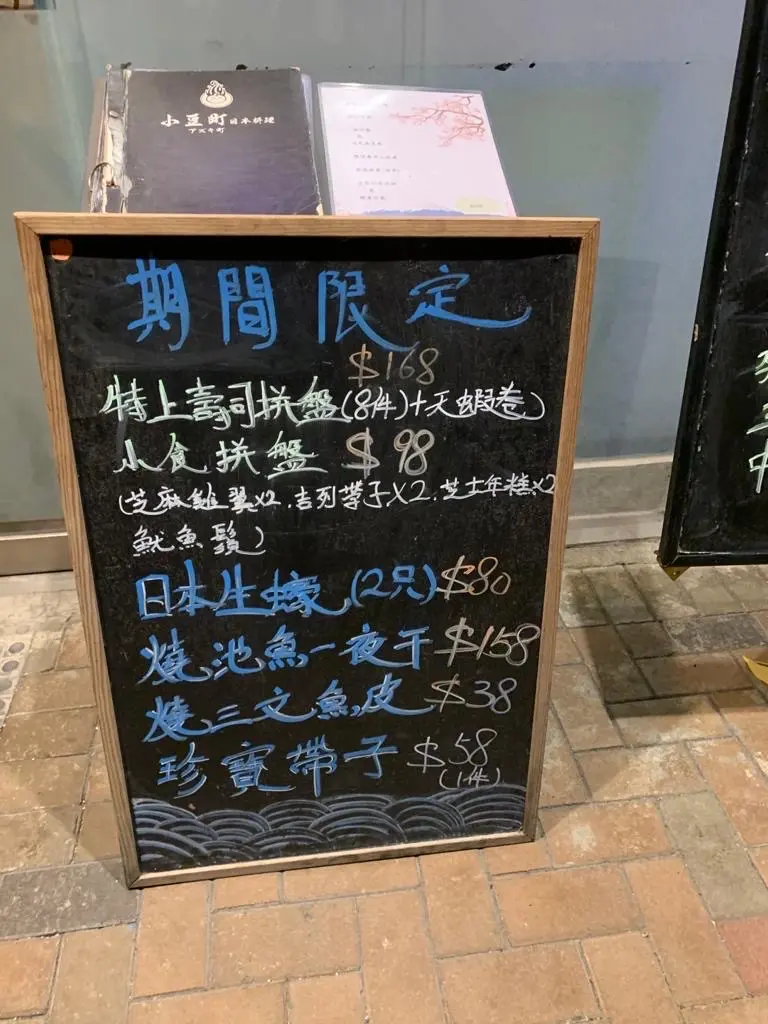 小豆町日本料理
アズキ町
期間限定
$168
特上壽司拼盤(8件)+天蝦卷)
小食拼盤 $98
(芝麻雞翼X2.吉列帶子X2.芝士年糕X2
魷魚鬚)
日本生蠔(2只)$80
燒池魚一夜干$158
燒三文魚皮$38
珍寶帶子$58
(1件)